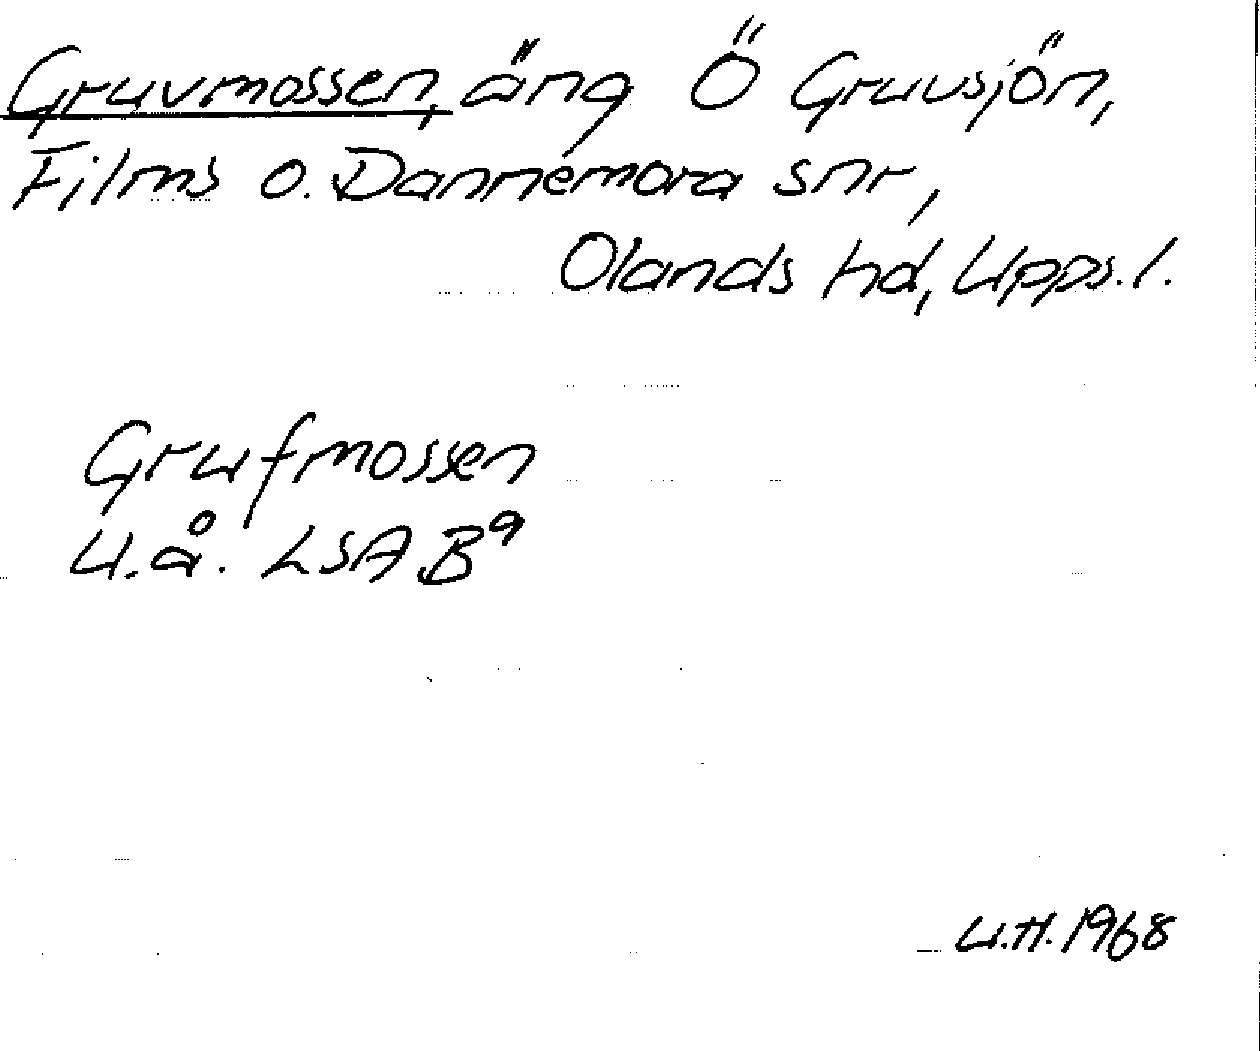 Gruvmossen, äng Ö Gruvsjön,
Films o. Dannemora snr,
Olands hd, Upps. l.
Grufmossen
U.å. LSA B⁹
U.H. 1968